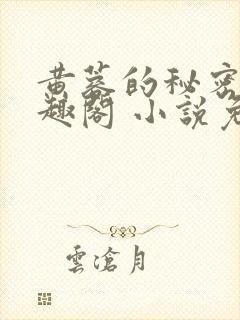 黄蓉的秘密
趣閣 小説免
雲滄月